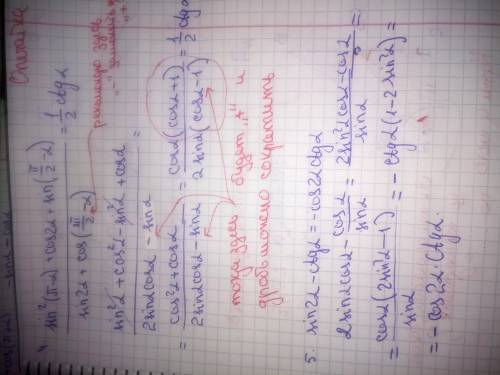 Опечатка
4. sin²(π-α) + cos2α + sin(π/2 - α) / sin2α + cos(3π/2 - α) = 1/2 ctgα
sin²α + cos²α - sin²α + cosα / 2sinα cosα - sinα =
= cos²α + cosα / 2sinα cosα - sinα = cosα(cosα+1) / 2sinα(cosα-1) = 1/2 ctgα
тогда здесь будет „+" и
дробь можно сократить
5. sin2α - ctgα = -cos2α ctgα
2sinα cosα - cosα/sinα = 2sin²α cosα - cosα / sinα =
= cosα(2sin²α - 1) / sinα = - ctgα(1 - 2sin²α) =
= - cos2α · ctgα.